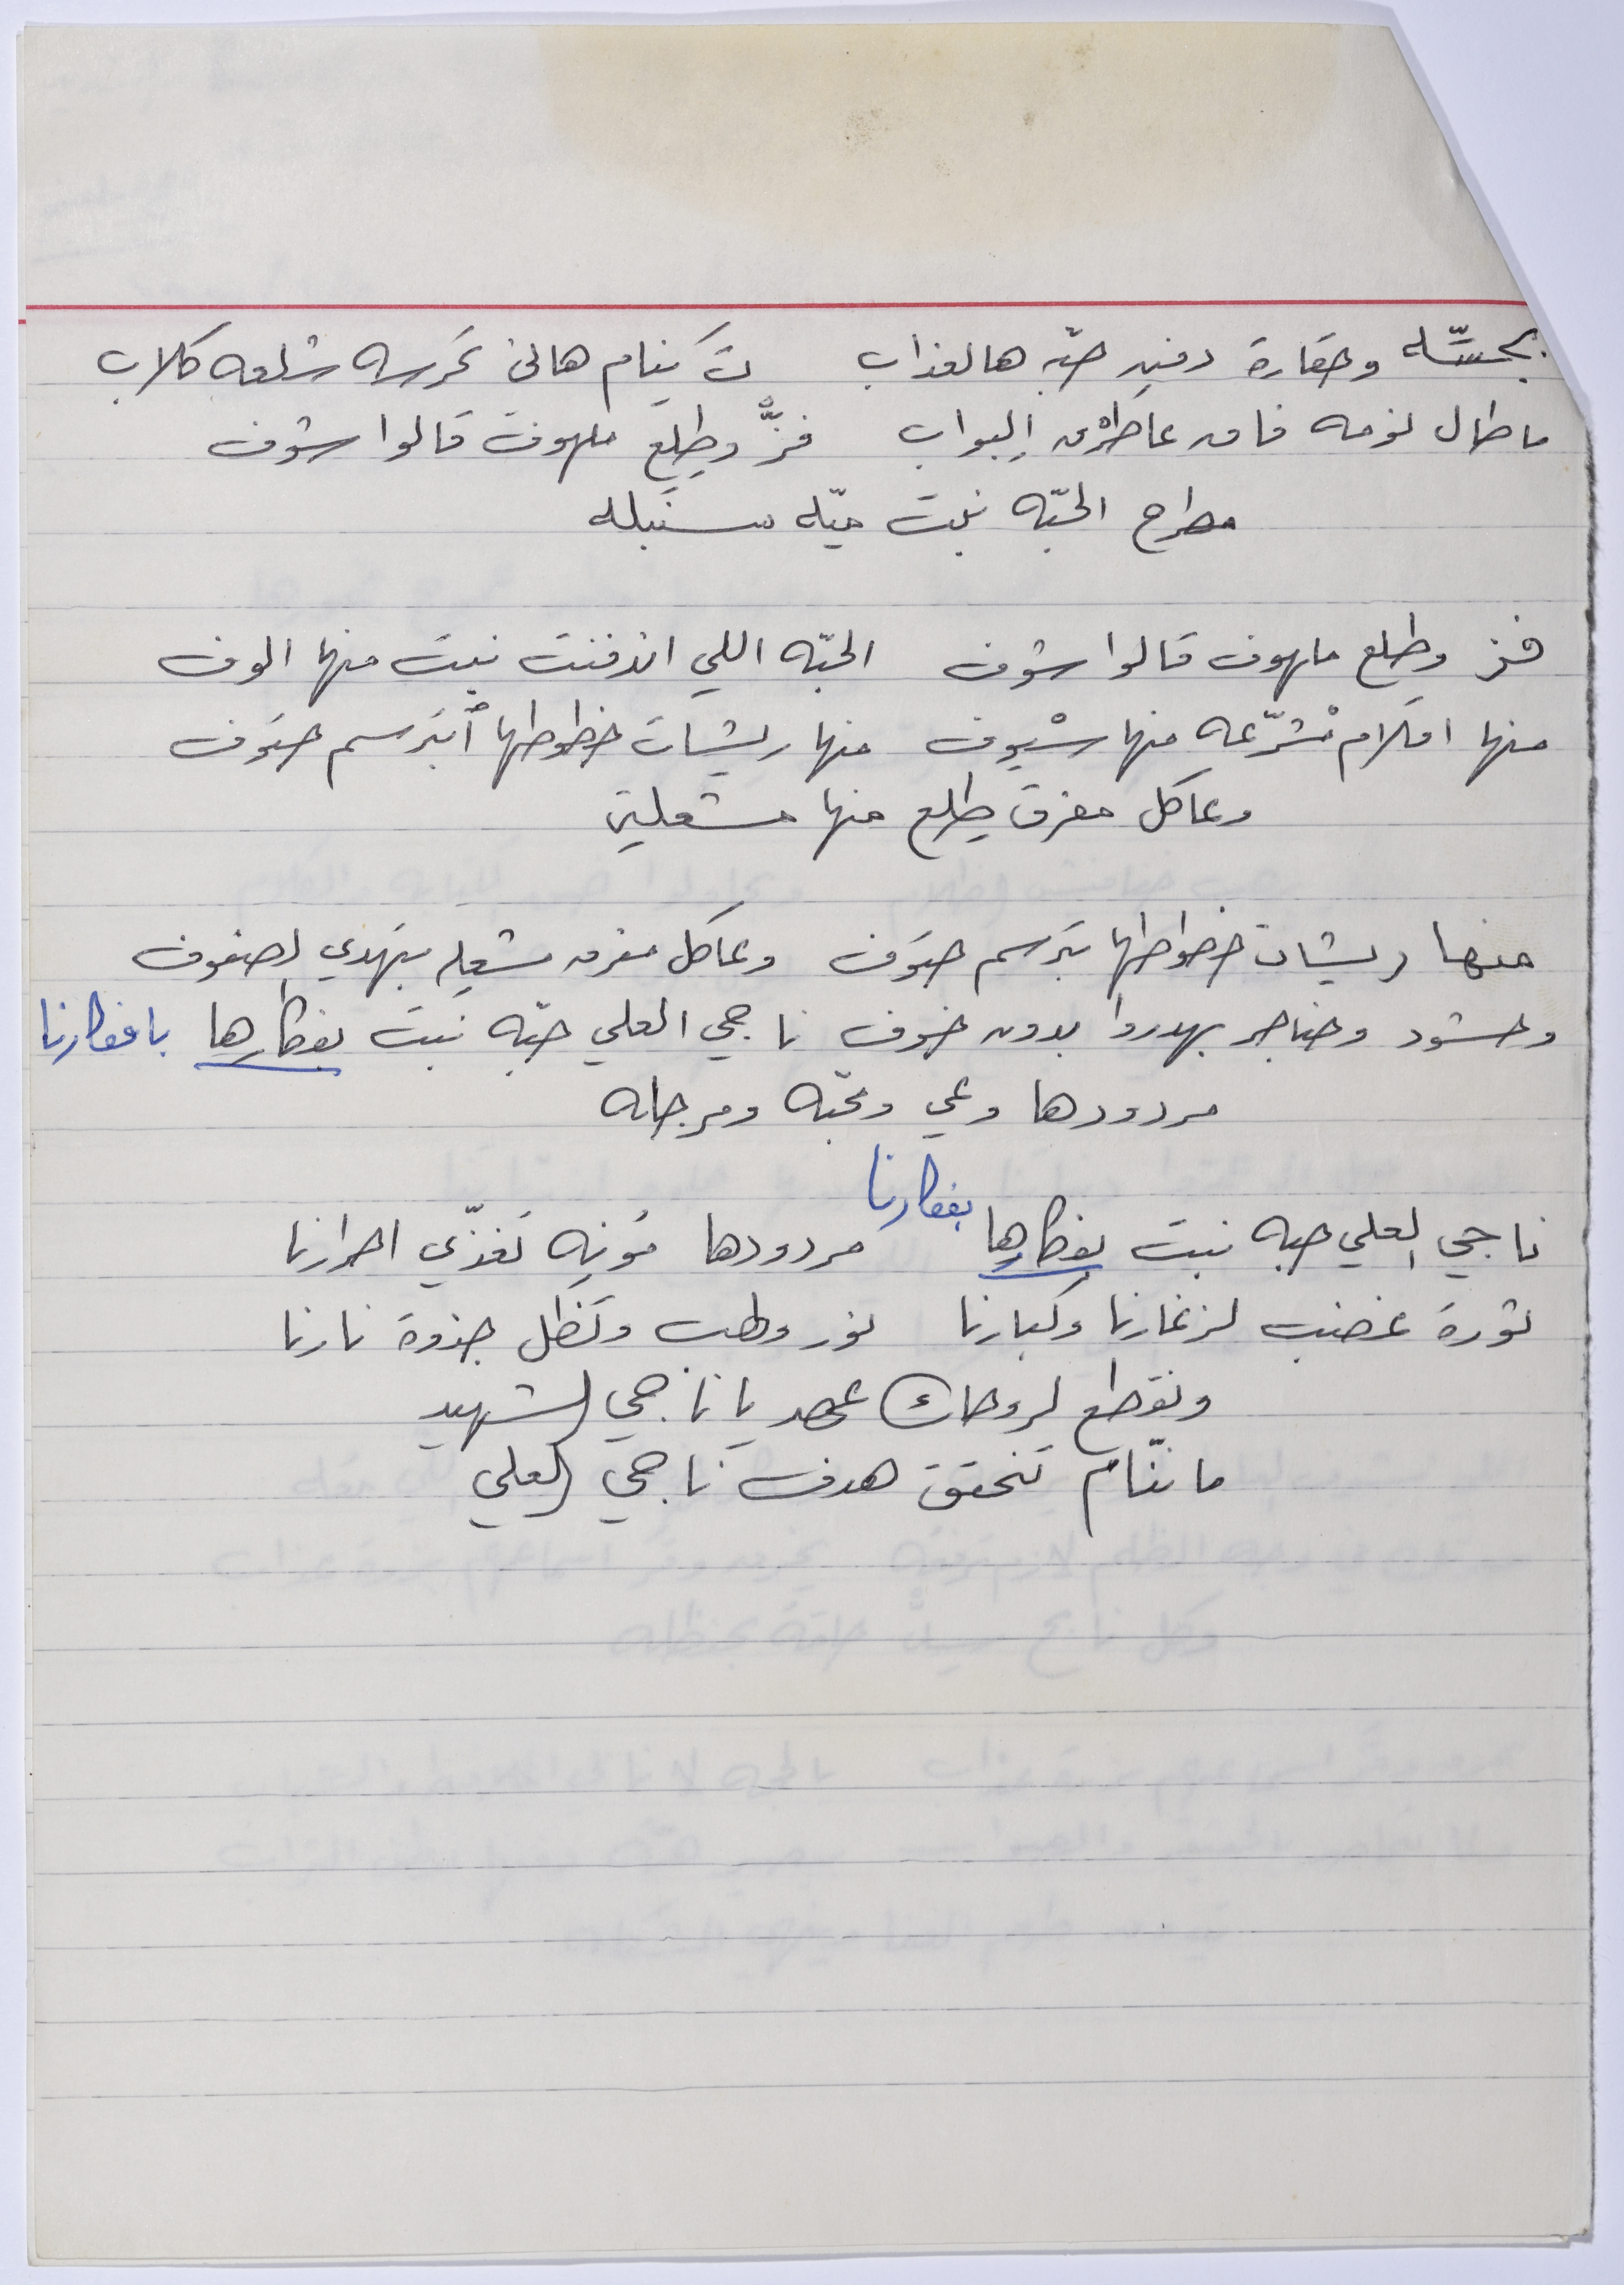 بخسّه وحقارة دفن حبّة هالعذاب تَ ينام هاني تحرسه شلعه كلاب
ما طال نومه فاق عا طرْق البواب فزّ وطِلِع ملهوف قالوا شوف
مطراح الحبّه نبت ميّة سنبله
فز وطلع ملهوف قالوا شوف الحبّه اللي اندفنت نبت منها الوف
منها اقلام مْشرّعه منها سْيوف منها ريشات خطوطها أبترسم حتوف
وعا كل مفرق طِلِع منها مشعلين
منها ريشات خطوطها بترسم حتوف وعا كل مفرق مشعل بيهدي الصفوف
وحشود وحناجر بهدروا بدون خوف ناجي العلي حبّه نبت بفكارها بافكارنا
مردودها وعي ومحبّه ومرجله
بفكارنا
ناجي العلي حبه نبت بفكارها مردودها مُونِه تغذّي احرارنا
ثورة غضب لزغارنا وكبارنا نور ولهب وتظل جذوة نارنا
ونقطع لروحك عهد يا ناجي الشهيد
ما ننّام تنحقق هدف ناجي العلي